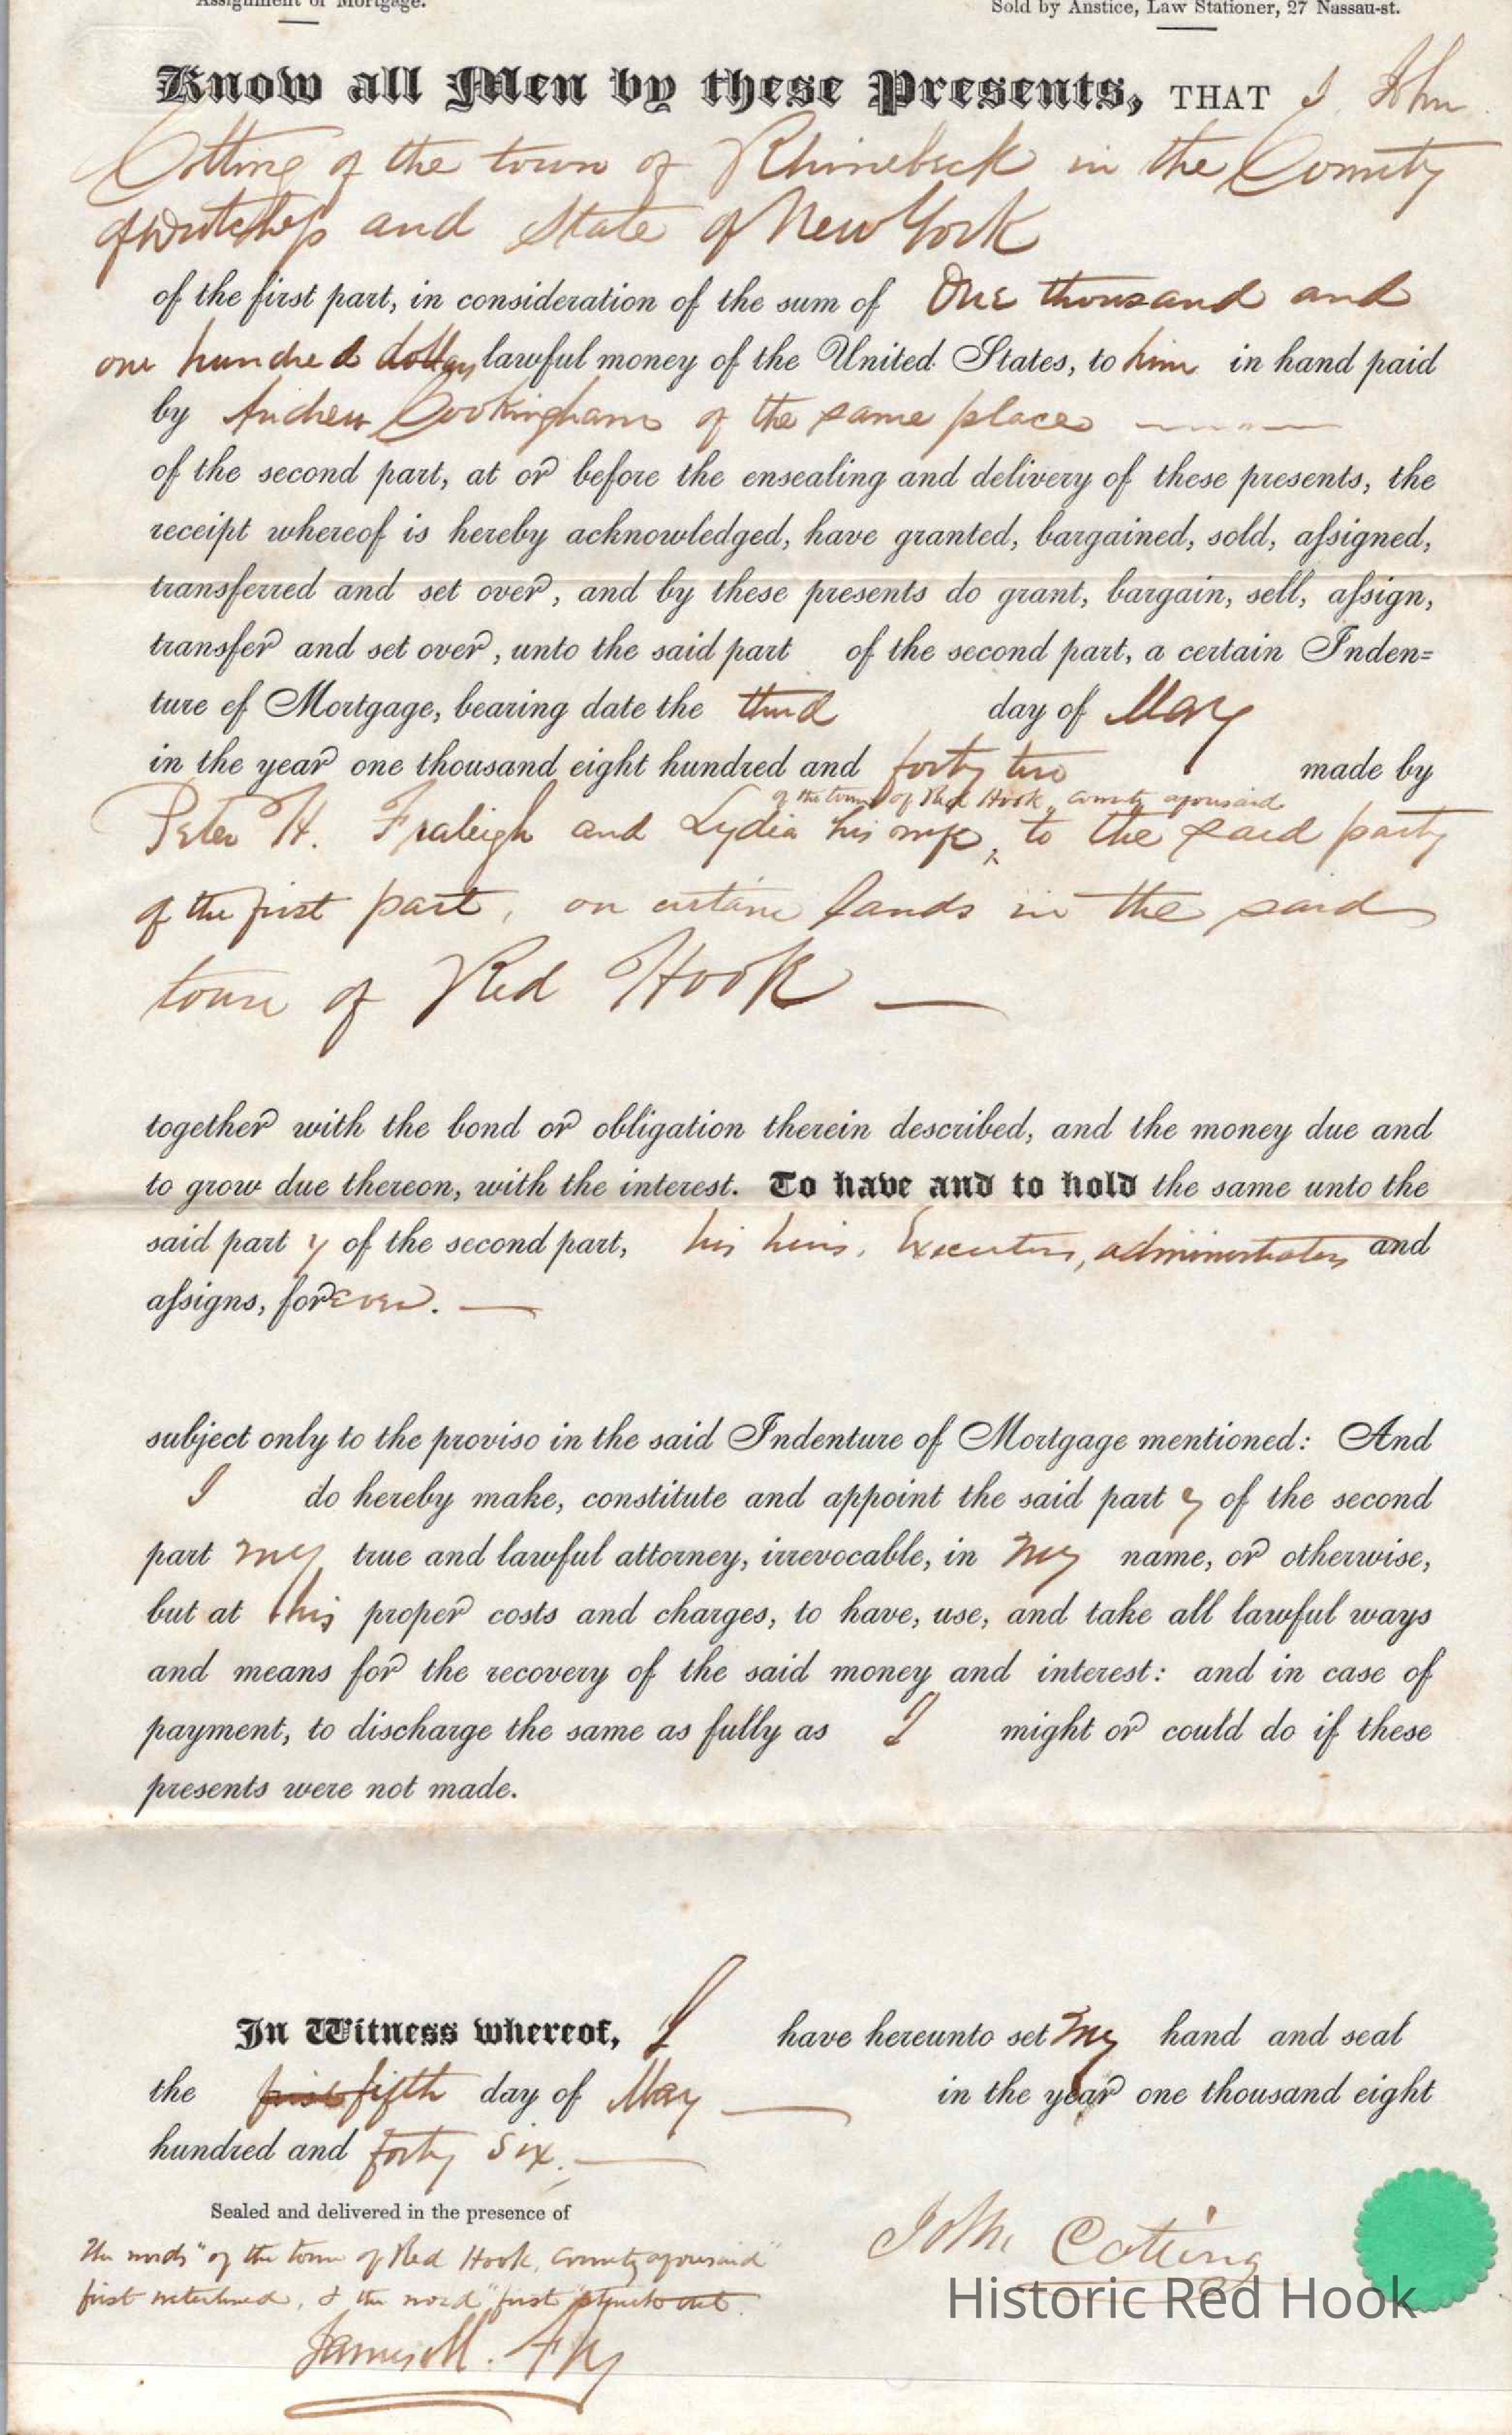 Assignment of Mortgage.
Sold by Anstice, Law Stationer, 27 Nassau-st.
Know all Men by these Presents, THAT I John
Cotting of the town of Rhinebeck in the County
of Dutchess and State of New York
of the first part, in consideration of the sum of One thousand and
one hundred dollars lawful money of the United States, to him in hand paid
by Andrew Cookingham of the same place
of the second part, at or before the ensealing and delivery of these presents, the
receipt whereof is hereby acknowledged, have granted, bargained, sold, assigned,
transferred and set over, and by these presents do grant, bargain, sell, assign,
transfer and set over, unto the said part of the second part, a certain Inden=
ture ef Mortgage, bearing date the third day of May
in the year one thousand eight hundred and forty two made by
of the town of Red Hook, County aforesaid
Peter H. Fraleigh and Lydia his wife, to the said party
of the first part, on certain lands in the said
town of Red Hook —
together with the bond or obligation therein described, and the money due and
to grow due thereon, with the interest. To have and to hold the same unto the
said part y of the second part, his heirs, Executors, administrators and
assigns, forever. —
subject only to the proviso in the said Indenture of Mortgage mentioned: And
I do hereby make, constitute and appoint the said part y of the second
part my true and lawful attorney, irrevocable, in my name, or otherwise,
but at his proper costs and charges, to have, use, and take all lawful ways
and means for the recovery of the said money and interest: and in case of
payment, to discharge the same as fully as I might or could do if these
presents were not made.
In Witness whereof, I have hereunto set my hand and seal
the first fifth day of May — in the year one thousand eight
hundred and forty six. —
Sealed and delivered in the presence of
The words "of the town of Red Hook, County aforesaid"
first interlined, & the word "first" struck out.
John Cotting
James M.
Historic Red Hook